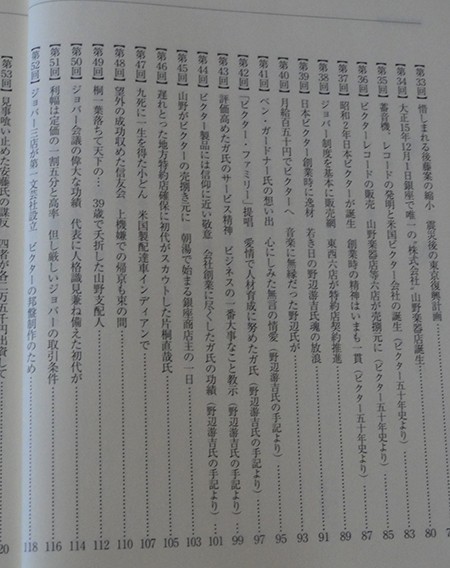 【第33回】 惜しまれる後藤案の縮小 震災後の東京復興計画
【第34回】 大正15年12月1日銀座で唯一の「株式会社」山野楽器店誕生 80
【第35回】 蓄音機、レコードの発明と米国ビクター会社の誕生(ビクター五十年史より) 83
【第36回】 ビクターレコードの販売 山野楽器店等六店が売捌元に(ビクター五十年史より) 85
【第37回】 昭和2年日本ビクターが誕生 創業時の精神はいまも一貫(ビクター五十年史より) 87
【第38回】 ジョバー制度を基本に販売網 東西六店が特約店契約推進 89
【第39回】 日本ビクター創業時に逸材 若き日の野辺游吉氏魂の放浪 91
【第40回】 月給百五十円でビクターへ 音楽に無縁だった野辺氏が 93
【第41回】 ベン・ガードナー氏の想い出 心にしみた無言の情愛(野辺游吉氏の手記より) 95
【第42回】 「ビクター・ファミリー」提唱 愛情で人材育成に努めたガ氏(野辺游吉氏の手記より) 97
【第43回】 評価高めたガ氏のサービス精神 ビジネスの一番大事なこと教示(野辺游吉氏の手記より) 99
【第44回】 ビクター製品には信仰に近い敬意 会社創業に尽くしたガ氏の功績(野辺游吉氏の手記より) 101
【第45回】 山野がビクターの売捌き元に 朝湯で始まる銀座商店主の一日 103
【第46回】 遅れとった地方特約店確保に初代がスカウトした片桐直哉氏 105
【第47回】 九死に一生を得た小どん 米国製配達車インディアンで 107
【第48回】 望外の成功収めた信友会 上機嫌での帰京も束の間 110
【第49回】 桐一葉落ちて天下の… 39歳で夭折した山野支配人 112
【第50回】 ジョバー会議の偉大な功績 代表に人格識見兼ね備えた初代が 114
【第51回】 利幅は定価の一割五分と高率 但し厳しいジョバーの取引条件 116
【第52回】 ジョバー三店が第一文芸社設立 ビクターの邦盤制作のため 118
【第53回】 見事喰い止めた安藤氏の謀反 四者が各二万五千円出資して 20